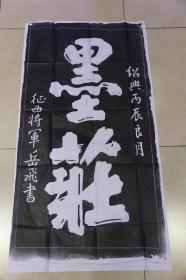 绍興丙辰良月
墨莊
征西将軍岳飛書